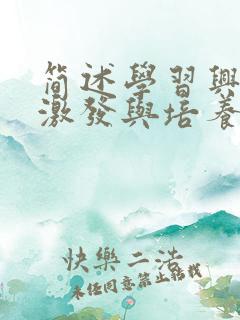 簡述學習興
激發與培養
快樂二浩
未经同意禁止轉載